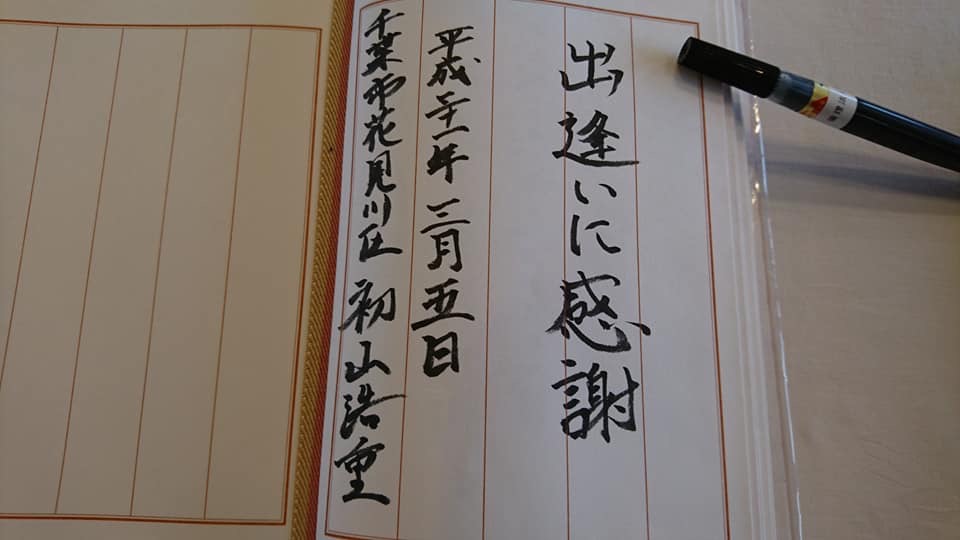 出逢いに感謝
平成三十一年三月五日
千葉市花見川区 初山浩重